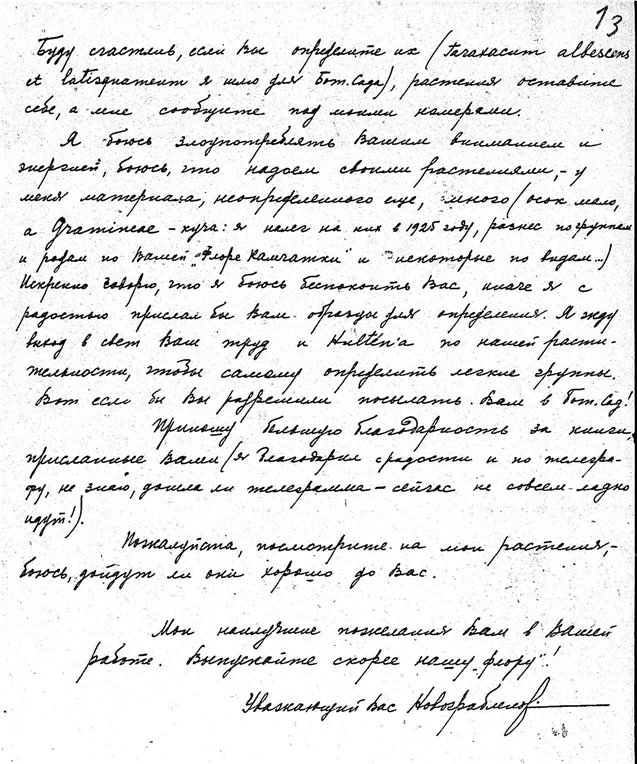 13
Буду счастлив, если Вы определите их (Taraxacum albescens
et latisquameum я шлю для Бот. Сада), растения оставите
себе, а мне сообщите под моими номерами.
Я боюсь злоупотреблять Вашим вниманием и
энергией, боюсь, что надоем своими растениями, – у
меня материала, неопределенного еще, много (осок мало,
а Gramineae – куча: я налег на них в 1925 году, разнес по группам
и родам по Вашей "Флоре Камчатки" и некоторые по видам...)
Искренно говорю, что я боюсь беспокоить Вас, иначе я с
радостью прислал бы Вам образцы для определения. Я жду
выход в свет Ваш труд и Hulten'a по нашей расти-
тельности, чтобы самому определить легкие группы.
Вот если бы Вы разрешили посылать Вам в Бот. Сад!
Приношу большую благодарность за книги,
присланные Вами (я благодарил с радости и по телегра-
фу, не знаю, дошла ли телеграмма – сейчас не совсем ладно
идут!).
Пожалуйста, посмотрите на мои растения, –
боюсь, дойдут ли они хорошо до Вас.
Мои наилучшие пожелания Вам в Вашей
работе. Выпускайте скорее нашу "флору"!
Уважающий Вас Новограбленов.